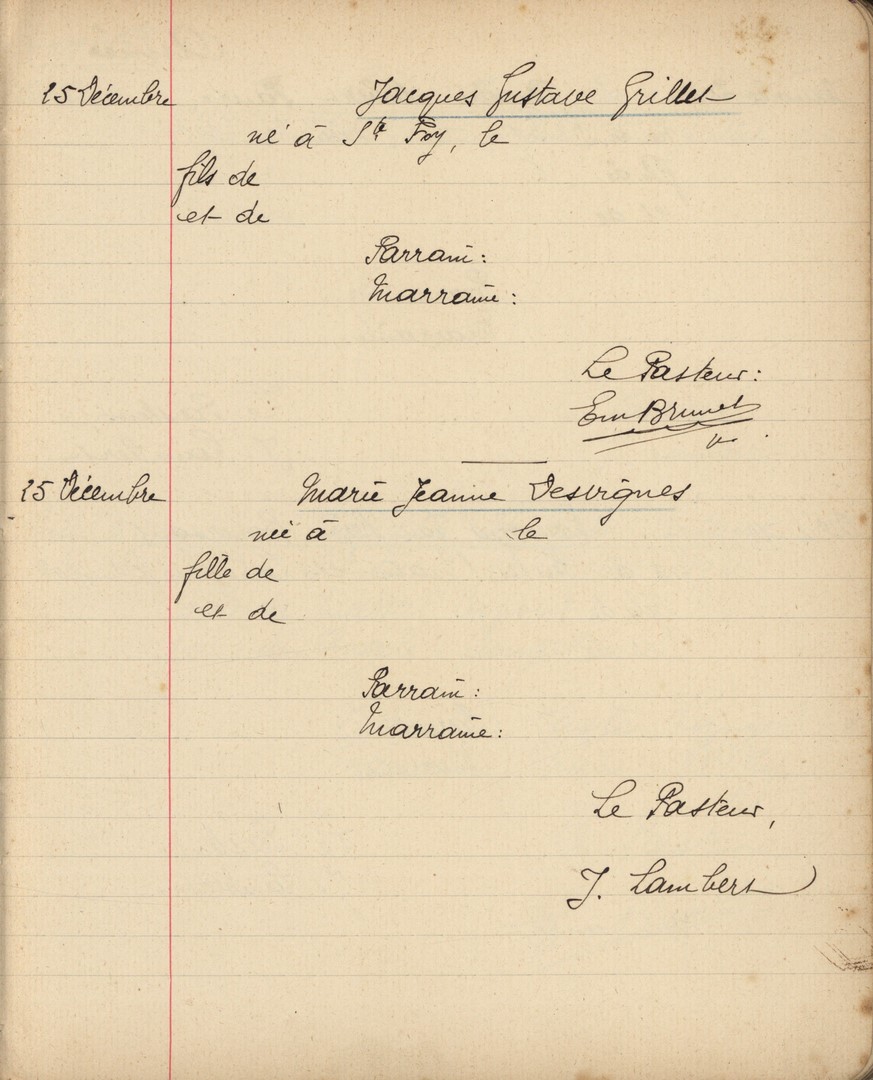 25 Décembre Jacques Gustave Grillet
né à Ste Foy, le
fils de
et de
Parrain :
Marraine :
Le Pasteur :
Em Brunet
25 Décembre Marie Jeanne Desvignes
née à le
fille de
et de
Parrain :
Marraine :
Le Pasteur,
J. Lambert